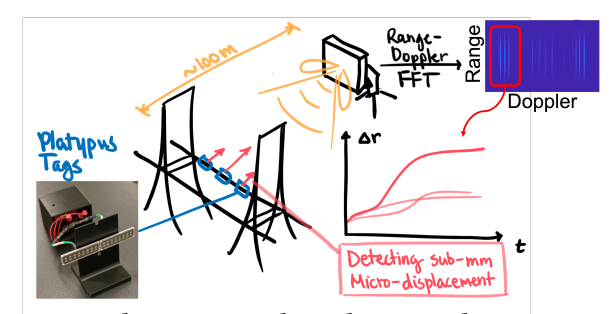 ~100m
Range-
Doppler
FFT
Range
Doppler
Platypus
Tags
Δr
t
Detecting sub-mm
Micro-displacement